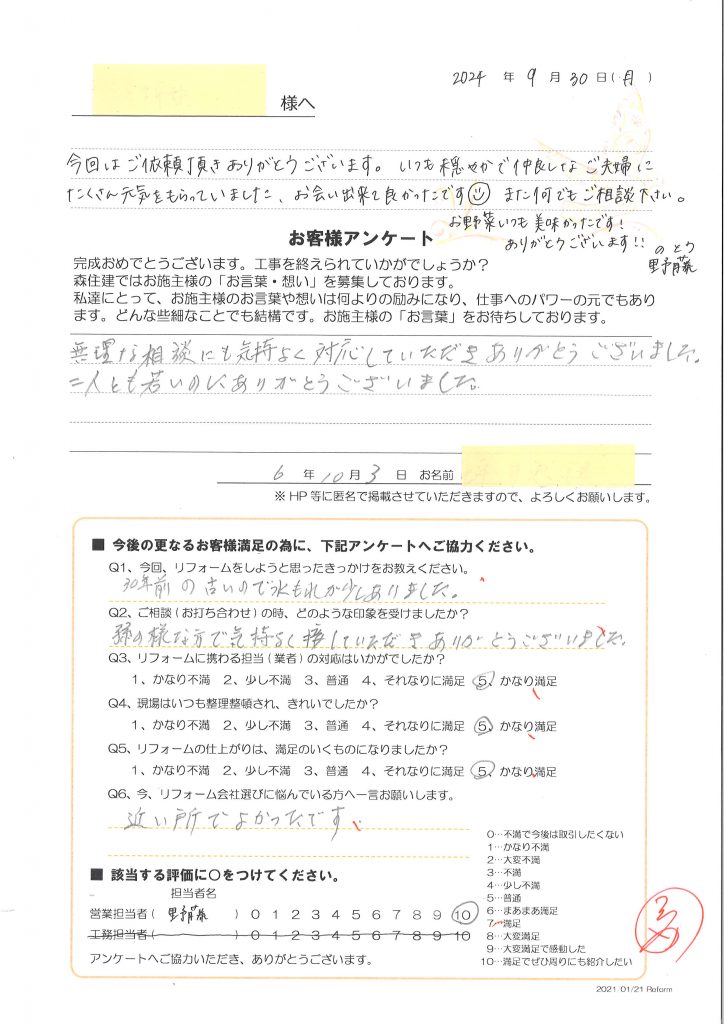 2024 年 9 月 30 日(月)
様へ
今回はご依頼頂きありがとうございます。いつも穏やかで仲良しなご夫婦に
たくさん元気をもらっていました、お会い出来て良かったです また何でもご相談下さい。
お野菜いつも美味かったです!
ありがとうございます!!
のとう
野藤
お客様アンケート
完成おめでとうございます。工事を終えられていかがでしょうか?
森住建ではお施主様の「お言葉・想い」を募集しております。
私達にとって、お施主様のお言葉や想いは何よりの励みになり、仕事へのパワーの元でもあり
ます。どんな些細なことでも結構です。お施主様の「お言葉」をお待ちしております。
無理な相談にも気持よく対応していただきありがとうございました。
二人とも若いのにありがとうございました。
6 年 10 月 3 日 お名前
※HP等に匿名で掲載させていただきますので、よろしくお願いします。
■ 今後の更なるお客様満足の為に、下記アンケートへご協力ください。
Q1、今回、リフォームをしようと思ったきっかけをお教えください。
30年前の古いので水もれが少しありました。
Q2、ご相談(お打ち合わせ)の時、どのような印象を受けましたか?
孫の様な方で気持よく接していただきありがとうございました。
Q3、リフォームに携わる担当(業者)の対応はいかがでしたか?
1、かなり不満 2、少し不満 3、普通 4、それなりに満足 5、かなり満足
Q4、現場はいつも整理整頓され、きれいでしたか?
1、かなり不満 2、少し不満 3、普通 4、それなりに満足 5、かなり満足
Q5、リフォームの仕上がりは、満足のいくものになりましたか?
1、かなり不満 2、少し不満 3、普通 4、それなりに満足 5、かなり満足
Q6、今、リフォーム会社選びに悩んでいる方へ一言お願いします。
近い所でよかったです
■ 該当する評価に○をつけてください。
担当者名
営業担当者( 野藤 ) 0 1 2 3 4 5 6 7 8 9 10
工務担当者( ) 0 1 2 3 4 5 6 7 8 9 10
アンケートへご協力いただき、ありがとうございます。
0…不満で今後は取引したくない
1…かなり不満
2…大変不満
3…不満
4…少し不満
5…普通
6…まあまあ満足
7…満足
8…大変満足
9…大変満足で感動した
10…満足でぜひ周りにも紹介したい
2021 01/21 Reform